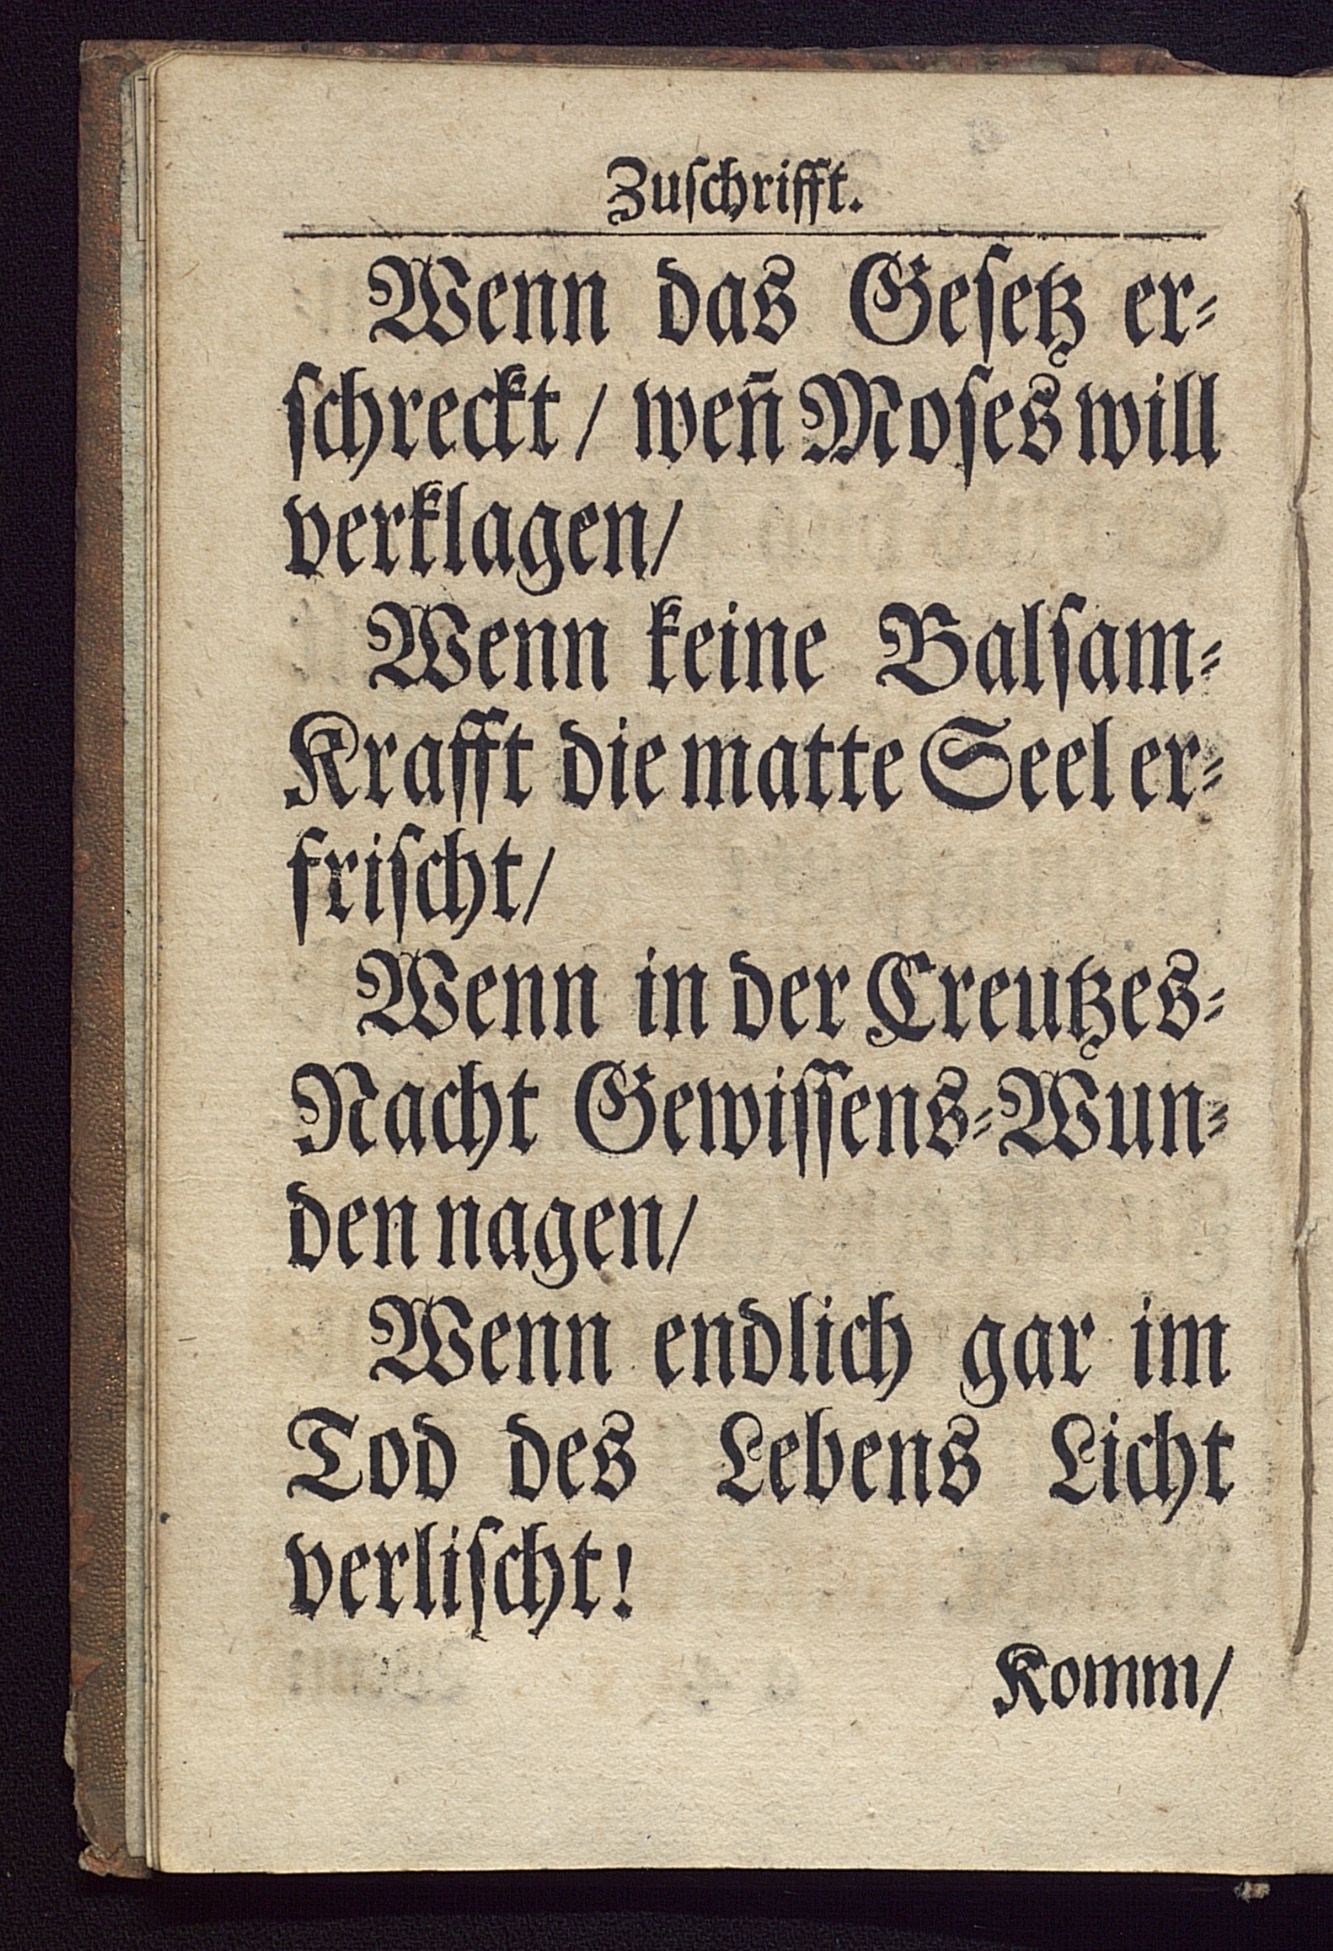 Zuſchrifft.
Wenn das Geſetz er⸗
ſchreckt / weñ Moſes will
verklagen/
Wenn keine Balſam⸗
Krafft die matte Seel er⸗
friſcht/
Wenn in der Creutzes⸗
Nacht Gewiſſens⸗Wun⸗
den nagen/
Wenn endlich gar im
Tod des Lebens Licht
verliſcht!
Komm/